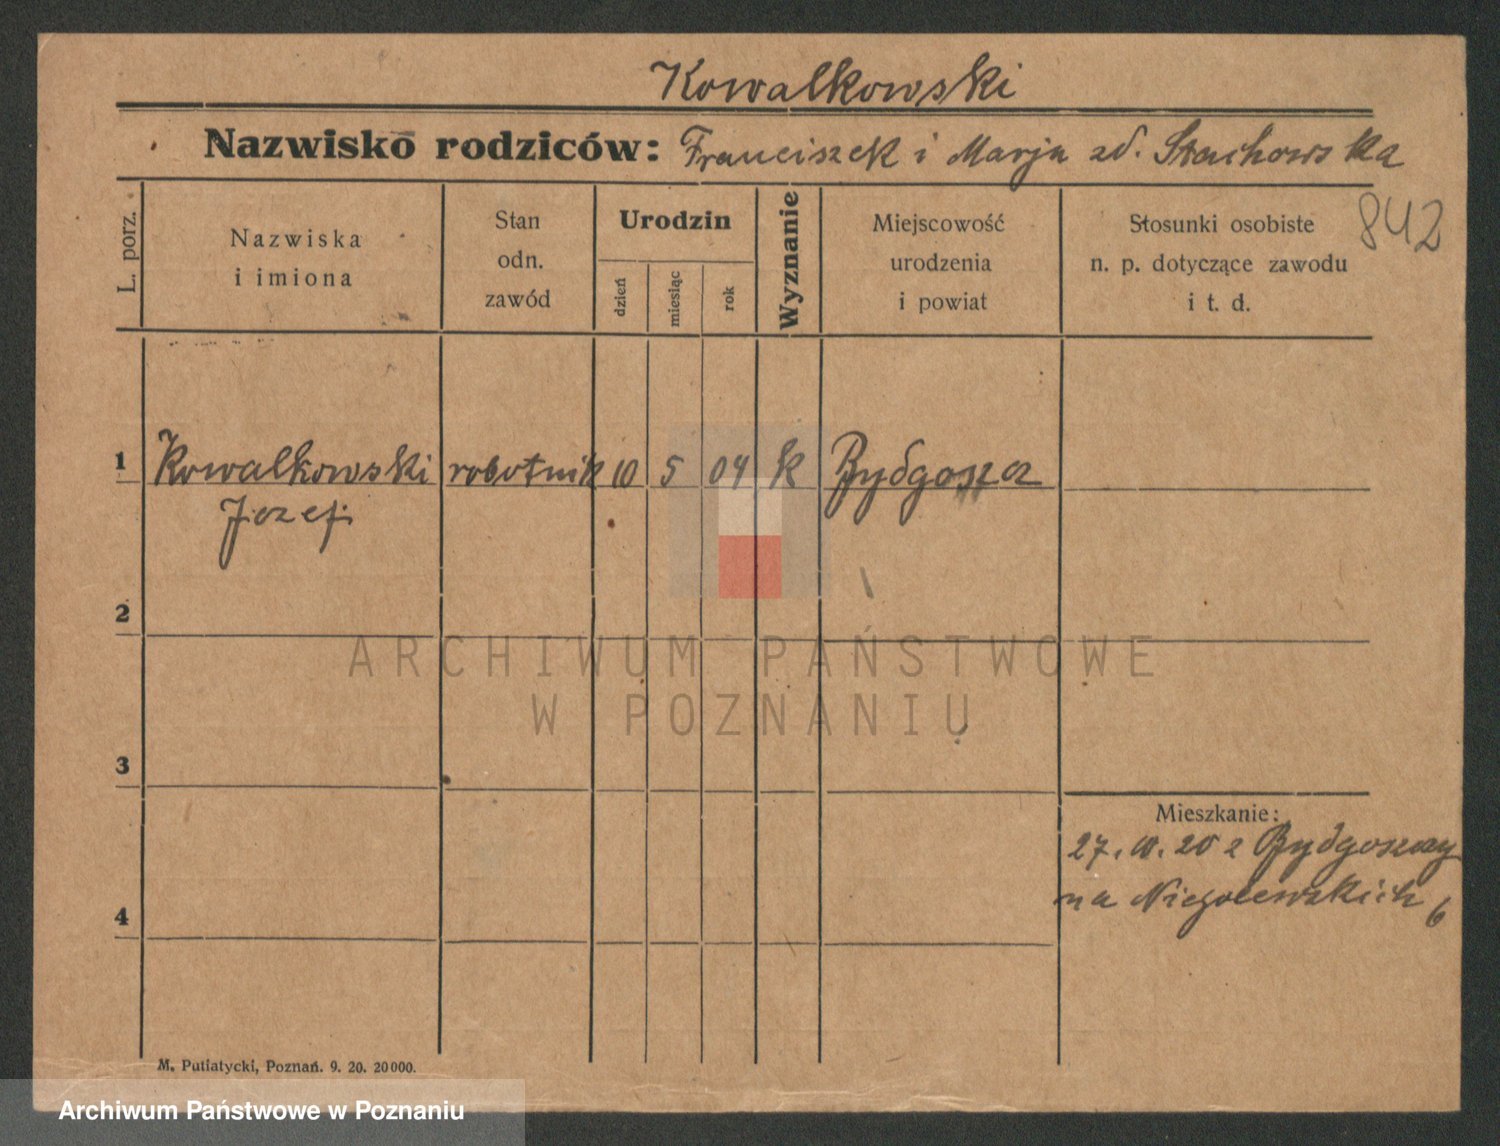 Kowalkowski
Nazwisko rodziców: Franciszek i Marja zd. Stachowska
842
L. porz.
Nazwiska
i imiona
Stan
odn.
zawód
Urodzin
dzień
miesiąc
rok
Wyznanie
Miejscowość
urodzenia
i powiat
Stosunki osobiste
n. p. dotyczące zawodu
i t. d.
1 Kowalkowski robotnik 10 5 04 k Bydgoszcz
Józef
2
3
4
Mieszkanie:
27. 10. 20 z Bydgoszczy
na Niegolewskich 6
M. Putiatycki, Poznań. 9. 20. 20000.
ARCHIWUM PAŃSTWOWE
W POZNANIU
Archiwum Państwowe w Poznaniu